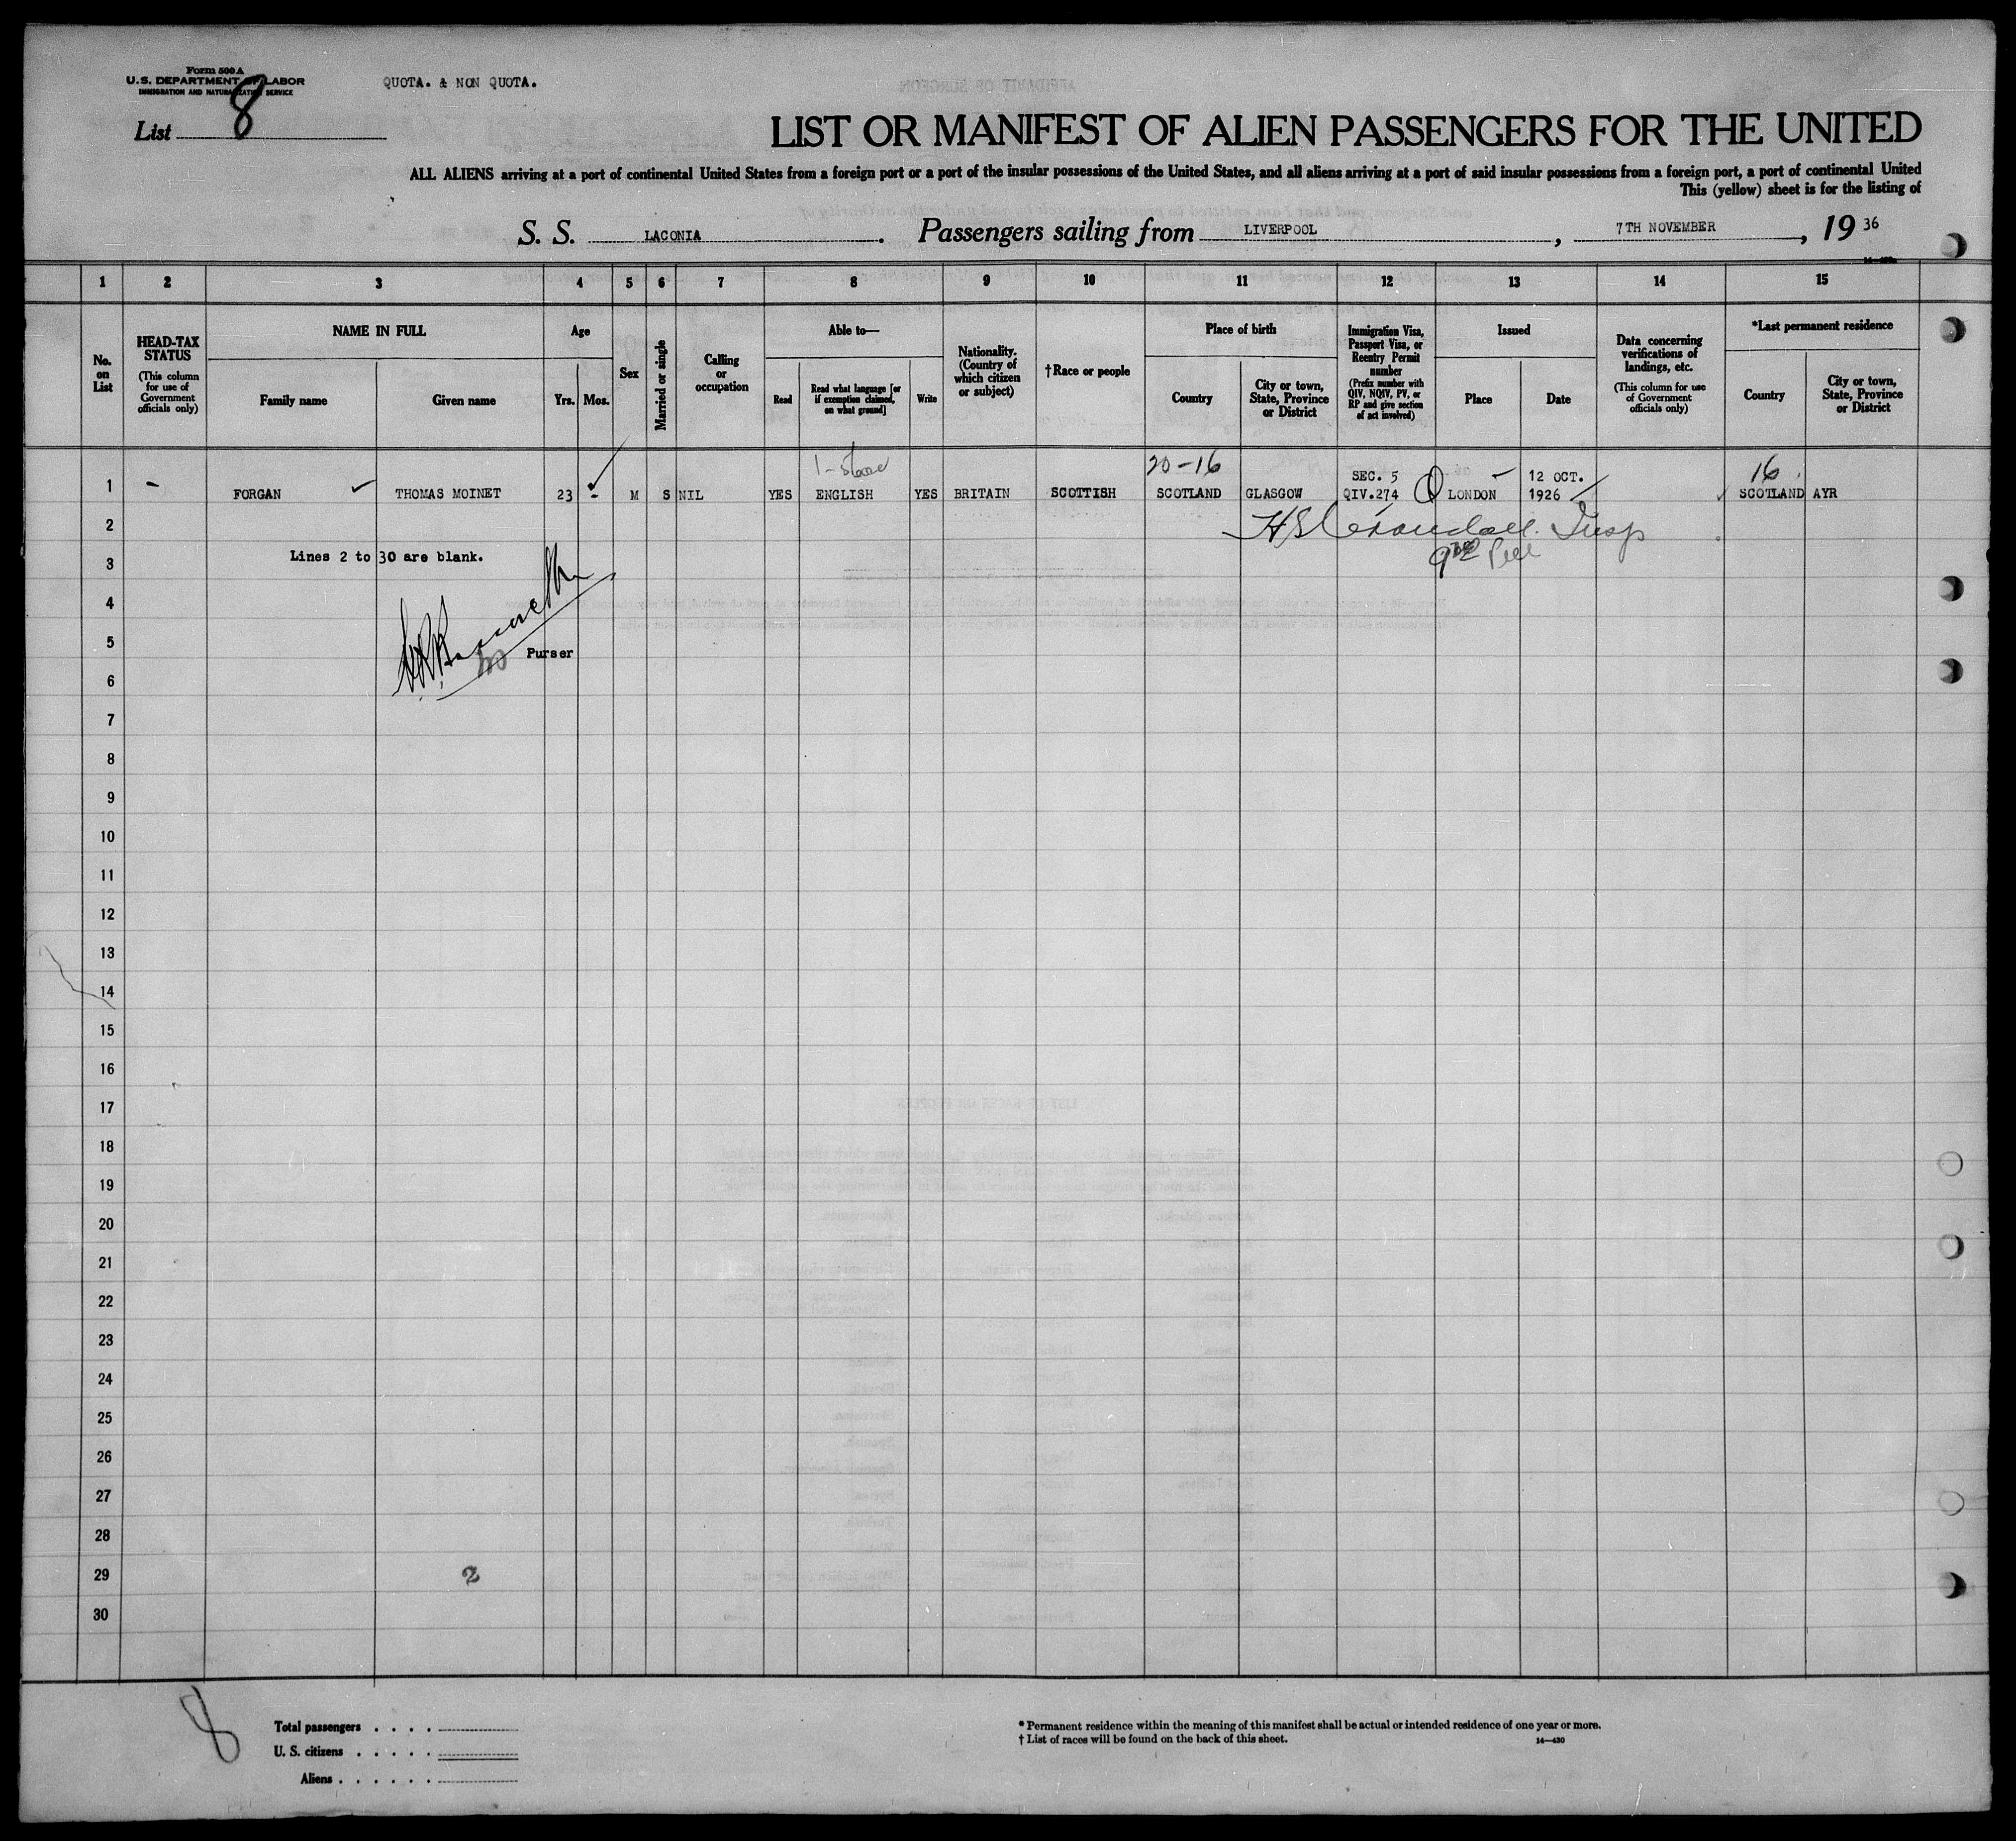 Form 500 A
U.S. DEPARTMENT OF LABOR
IMMIGRATION AND NATURALIZATION SERVICE
QUOTA. & NON QUOTA.
List 8
LIST OR MANIFEST OF ALIEN PASSENGERS FOR THE UNITED
ALL ALIENS arriving at a port of continental United States from a foreign port or a port of the insular possessions of the United States, and all aliens arriving at a port of said insular possessions from a foreign port, a port of continental United
This (yellow) sheet is for the listing of
S. S. LACONIA. Passengers sailing from LIVERPOOL, 7TH NOVEMBER, 19 36
1 2 3 4 5 6 7 8 9 10 11 12 13 14 15
No. on List
HEAD-TAX STATUS
(This column for use of Government officials only)
NAME IN FULL
Family name
Given name
Age
Yrs. Mos.
Sex
Married or single
Calling or occupation
Able to—
Read
Read what language [or if exemption claimed, on what ground]
Write
Nationality. (Country of which citizen or subject)
†Race or people
Place of birth
Country
City or town, State, Province or District
Immigration Visa, Passport Visa, or Reentry Permit number
(Prefix number with QIV, NQIV, PV, or RP and give section of act involved)
Issued
Place
Date
Data concerning verifications of landings, etc.
(This column for use of Government officials only)
*Last permanent residence
Country
City or town, State, Province or District
20-16 SEC. 5 12 OCT. 16
1 – FORGAN THOMAS MOINET 23 - M S NIL YES ENGLISH YES BRITAIN SCOTTISH SCOTLAND GLASGOW QIV.274 LONDON 1926 SCOTLAND AYR
2
Lines 2 to 30 are blank.
3
4
5
Purser
6
7
8
9
10
11
12
13
14
15
16
17
18
19
20
21
22
23
24
25
26
27
28
29 2
30
8
Total passengers . . . .
U. S. citizens . . . . .
Aliens . . . . . .
* Permanent residence within the meaning of this manifest shall be actual or intended residence of one year or more.
† List of races will be found on the back of this sheet.
14—430